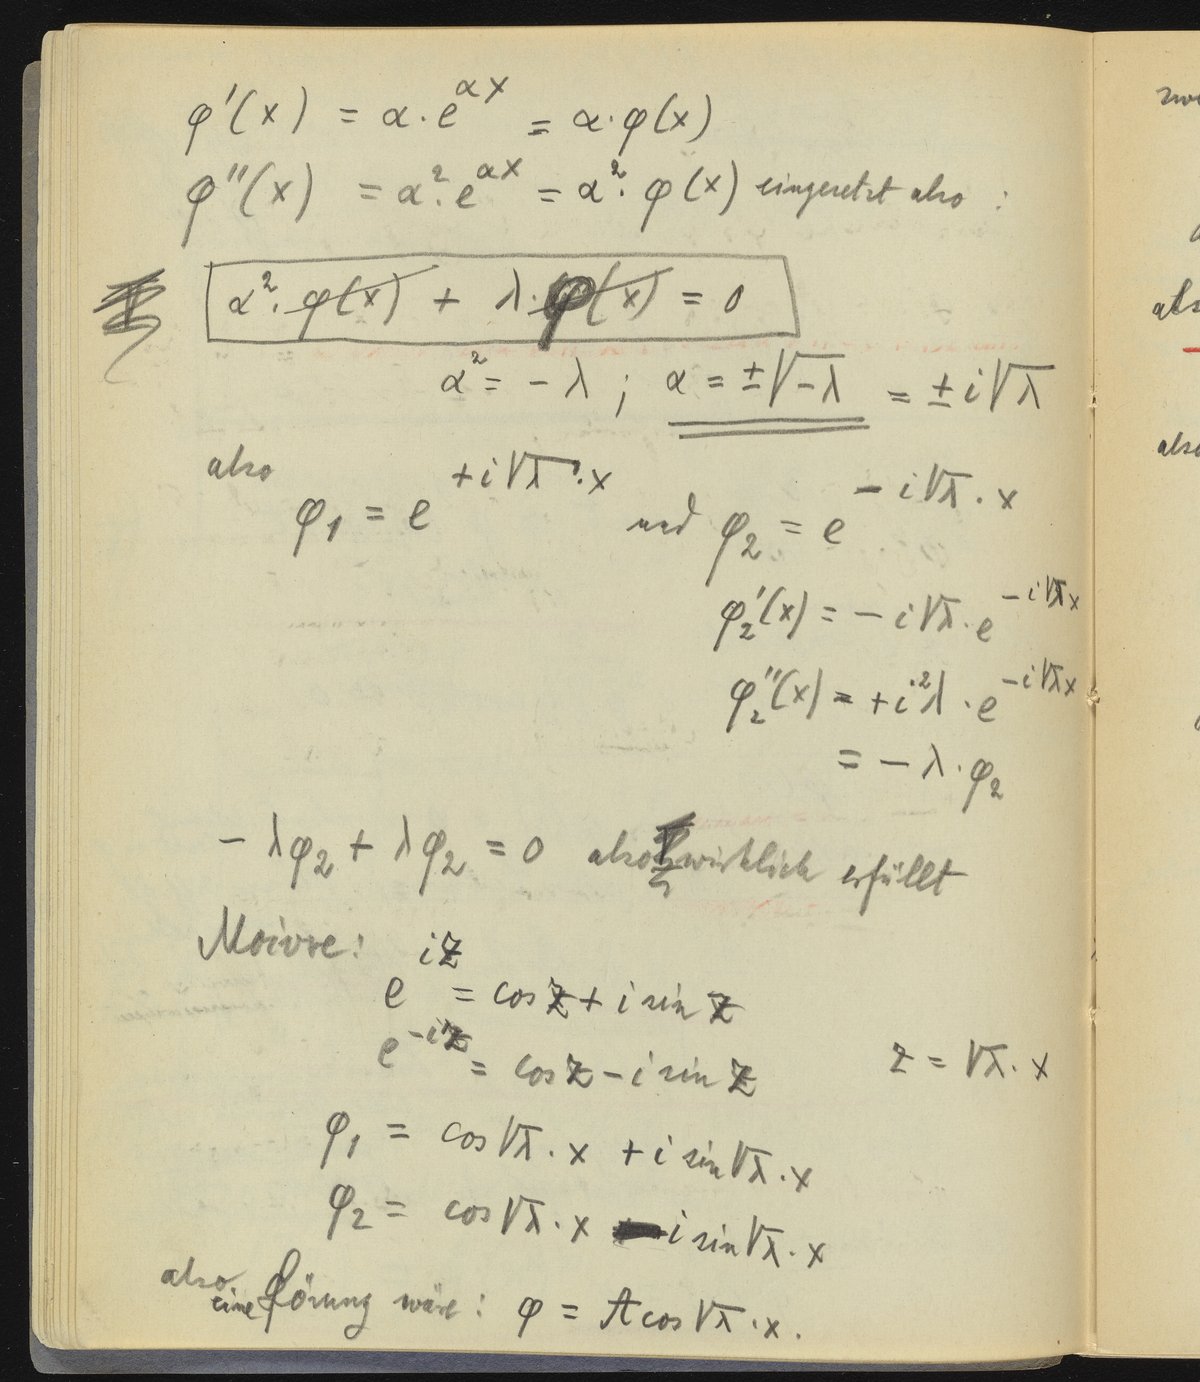 φ'(x) = α · e^{αx} = α · φ(x)
φ''(x) = α² · e^{αx} = α² · φ(x) eingesetzt also :
α² · φ(x) + λ · φ(x) = 0
α² = − λ ; α = ±√−λ = ± i√λ
also
φ₁ = e^{+i√λ · x} und φ₂ = e^{− i√λ · x}
φ₂'(x) = − i√λ · e^{−i√λ x}
φ₂''(x) = + i²λ · e^{−i√λ x}
= − λ · φ₂
− λφ₂ + λφ₂ = 0 also wirklich erfüllt
Moivre:
e^{iz} = cos z + i sin z
e^{−iz} = cos z − i sin z z = √λ · x
φ₁ = cos√λ · x + i sin√λ · x
φ₂ = cos√λ · x − i sin√λ · x
also
eine Lösung wäre: φ = A cos√λ · x.